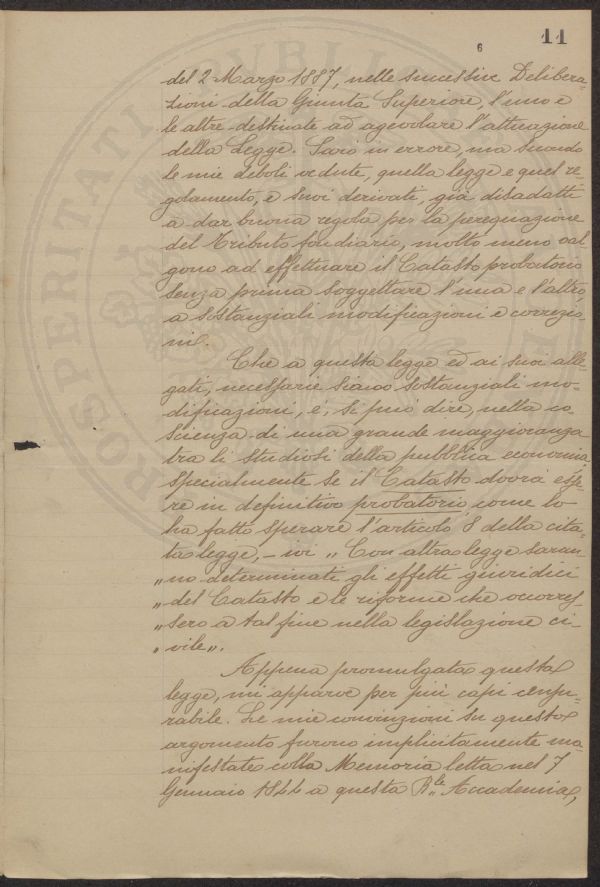 6
11
del 2 Marzo 1887, nelle successive Delibera-
zioni della Giunta Superiore, l'uno e
le altre destinate ad agevolare l'attuazione
della Legge. Sarò in errore, ma secondo
le mie deboli vedute, quella legge e quel re-
golamento, e suoi derivati, già disadatti
a dar buona regola per la perequazione
del Tributo fondiario, molto meno val-
gono ad effettuare il Catasto probatorio
senza prima soggettare l'una e l'altro,
a sostanziali modificazioni e correzio-
ni.
Che a questa legge ed ai suoi alle-
gati, necessarie siano sostanziali mo-
dificazioni, è, si può dire, nella co-
scienza di una grande maggioranza
tra li studiosi della pubblica economia,
specialmente se il Catasto dovrà esse-
re in definitivo probatorio, come lo
ha fatto sperare l'articolo 8 della cita-
ta legge, - ivi „ Con altra legge saran-
„ no determinati gli effetti giuridici
„ del Catasto e le riforme che occorres-
„ sero a tal fine nella legislazione ci-
„ vile „.
Appena promulgata questa
legge, mi apparve per più capi censu-
rabile. Le mie convinzioni su questo
argomento furono implicitamente ma-
nifestate colla Memoria letta nel 7
Gennaio 1844 a questa R.le Accademia,
ROSPERITATI PUBLIC